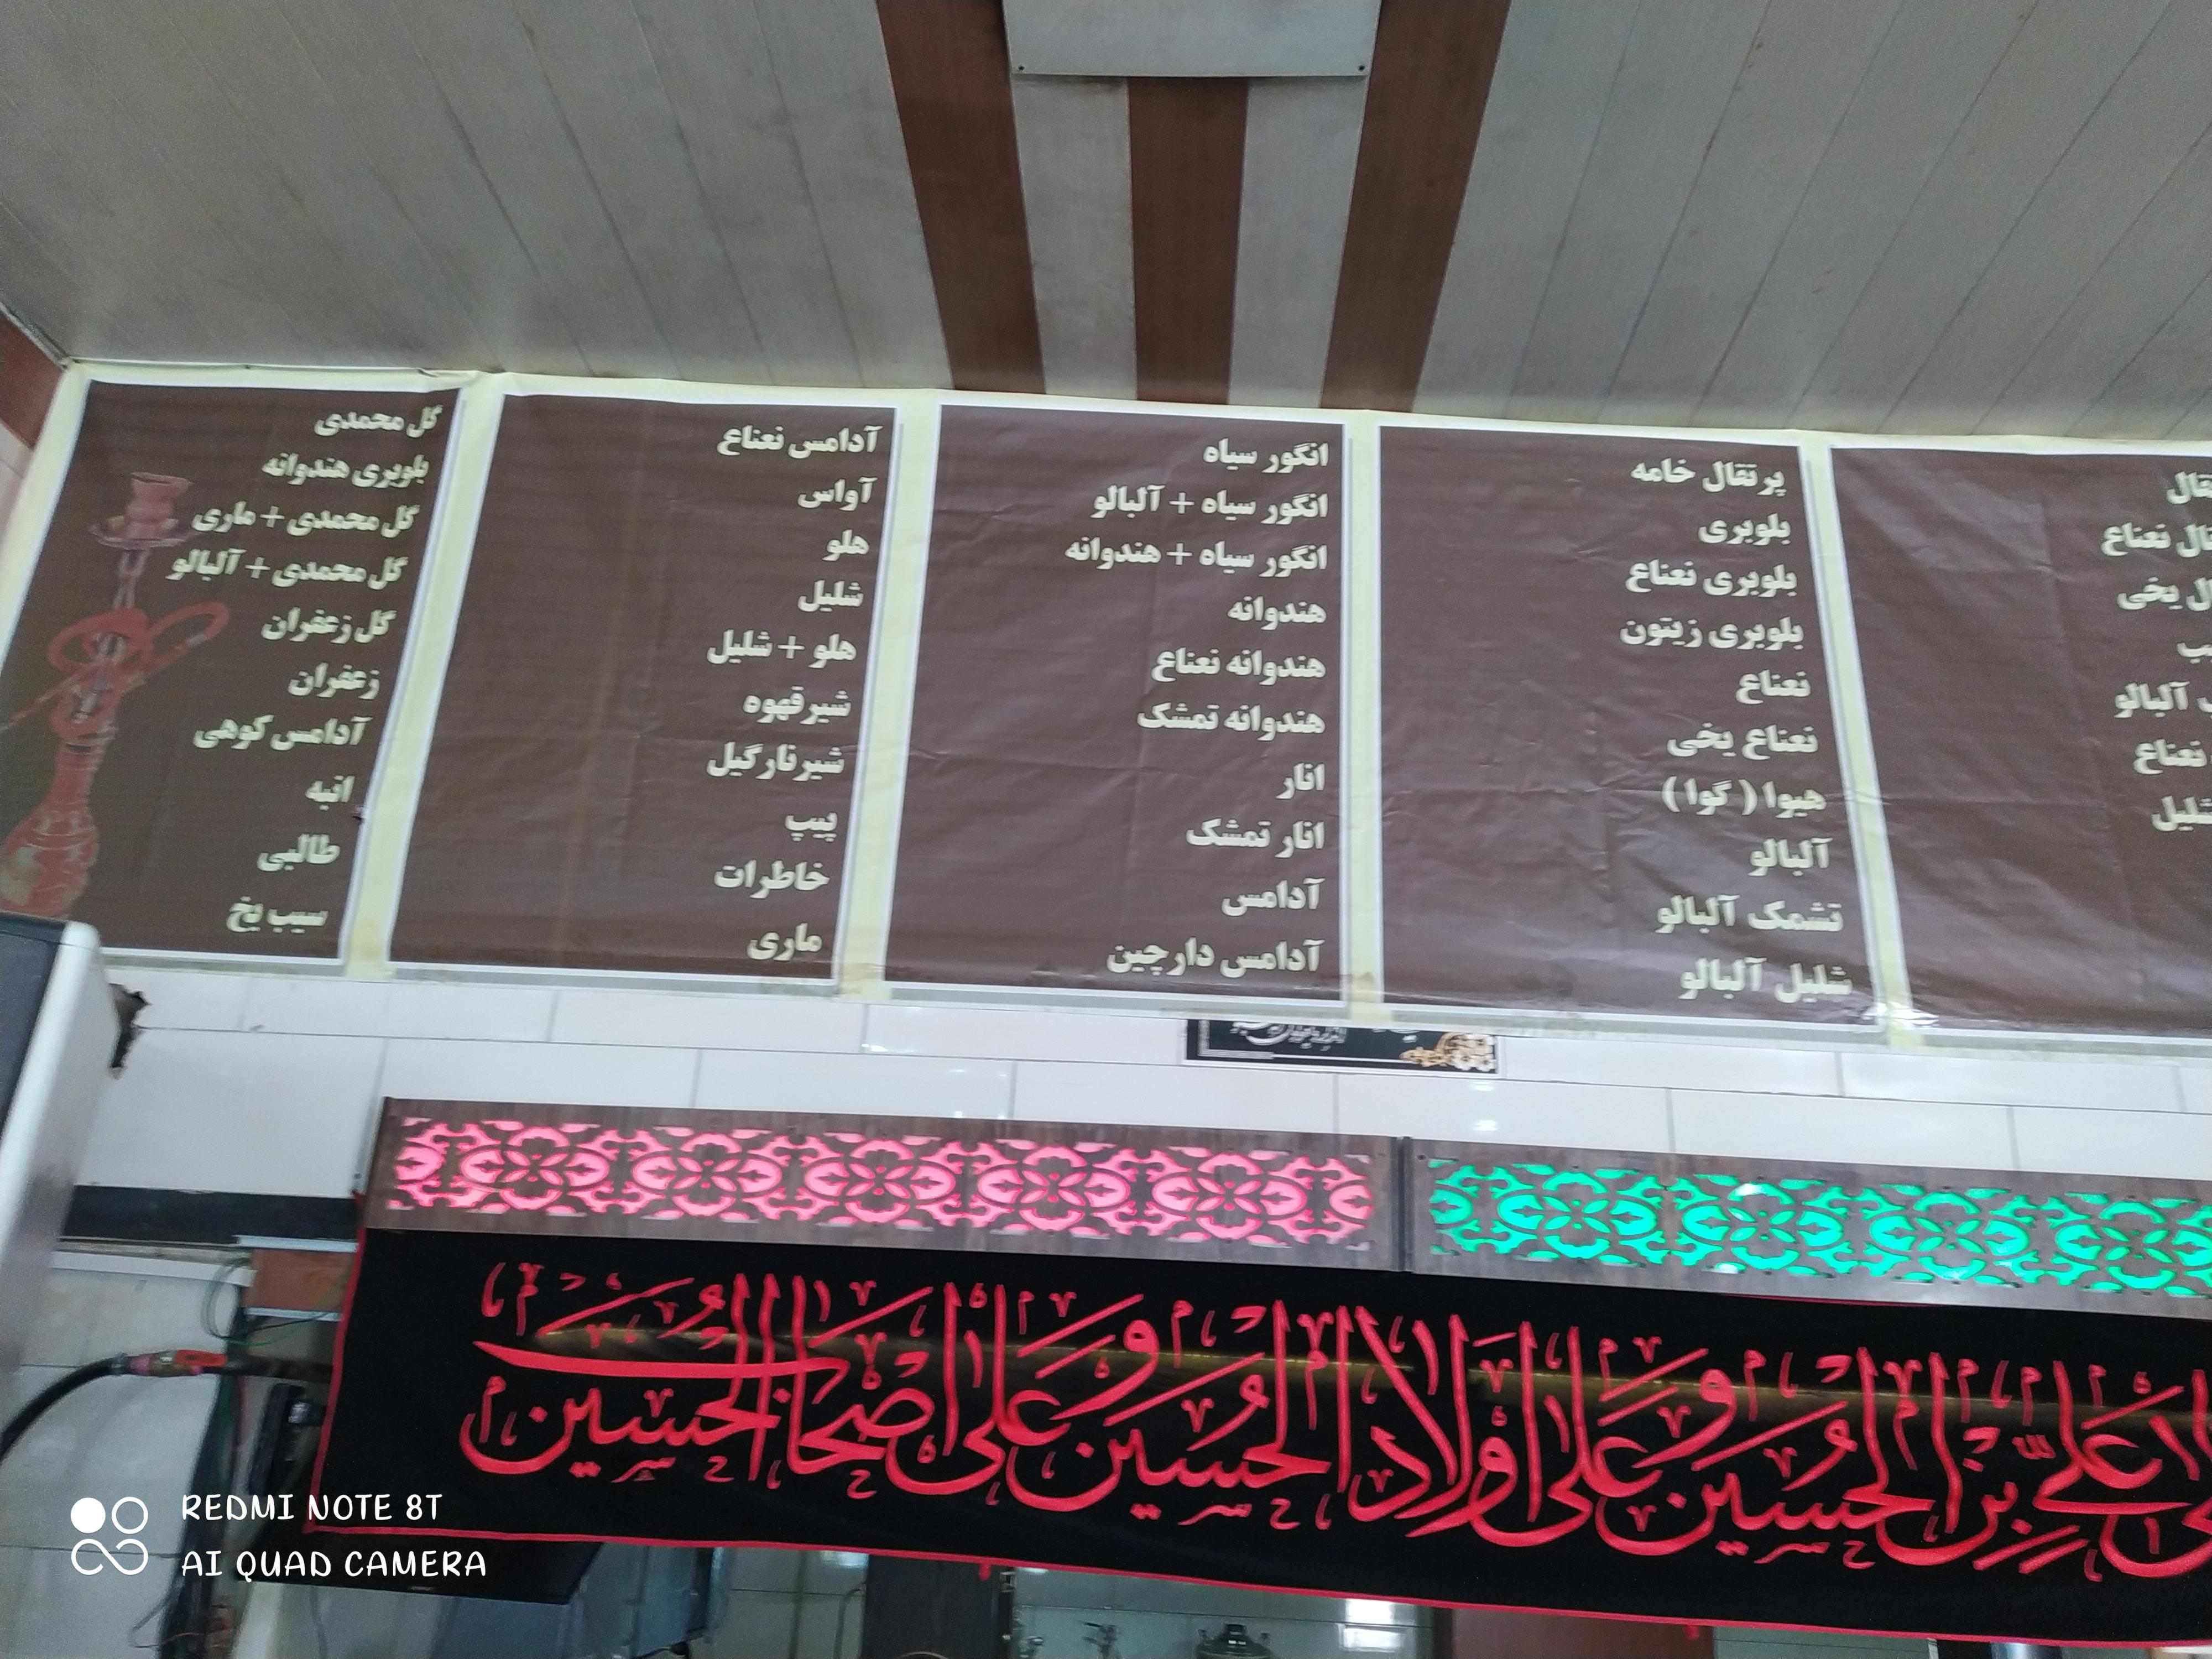 نعناع
آلبالو
یخی
پرتقال خامه
بلوبری
بلوبری نعناع
بلوبری زیتون
نعناع
نعناع یخی
هیوا ( گوا )
آلبالو
تشمک آلبالو
شلیل آلبالو
انگور سیاه
انگور سیاه + آلبالو
انگور سیاه + هندوانه
هندوانه
هندوانه نعناع
هندوانه تمشک
انار
انار تمشک
آدامس
آدامس دارچین
آدامس نعناع
آواس
هلو
شلیل
هلو + شلیل
شیرقهوه
شیرنارگیل
پیپ
خاطرات
ماری
گل محمدی
بلوبری هندوانه
گل محمدی + ماری
گل محمدی + آلبالو
گل زعفران
زعفران
آدامس کوهی
انبه
طالبی
سیب یخ
علی بن الحسین و علی اولاد الحسین و علی اصحاب الحسین
REDMI NOTE 8T
AI QUAD CAMERA